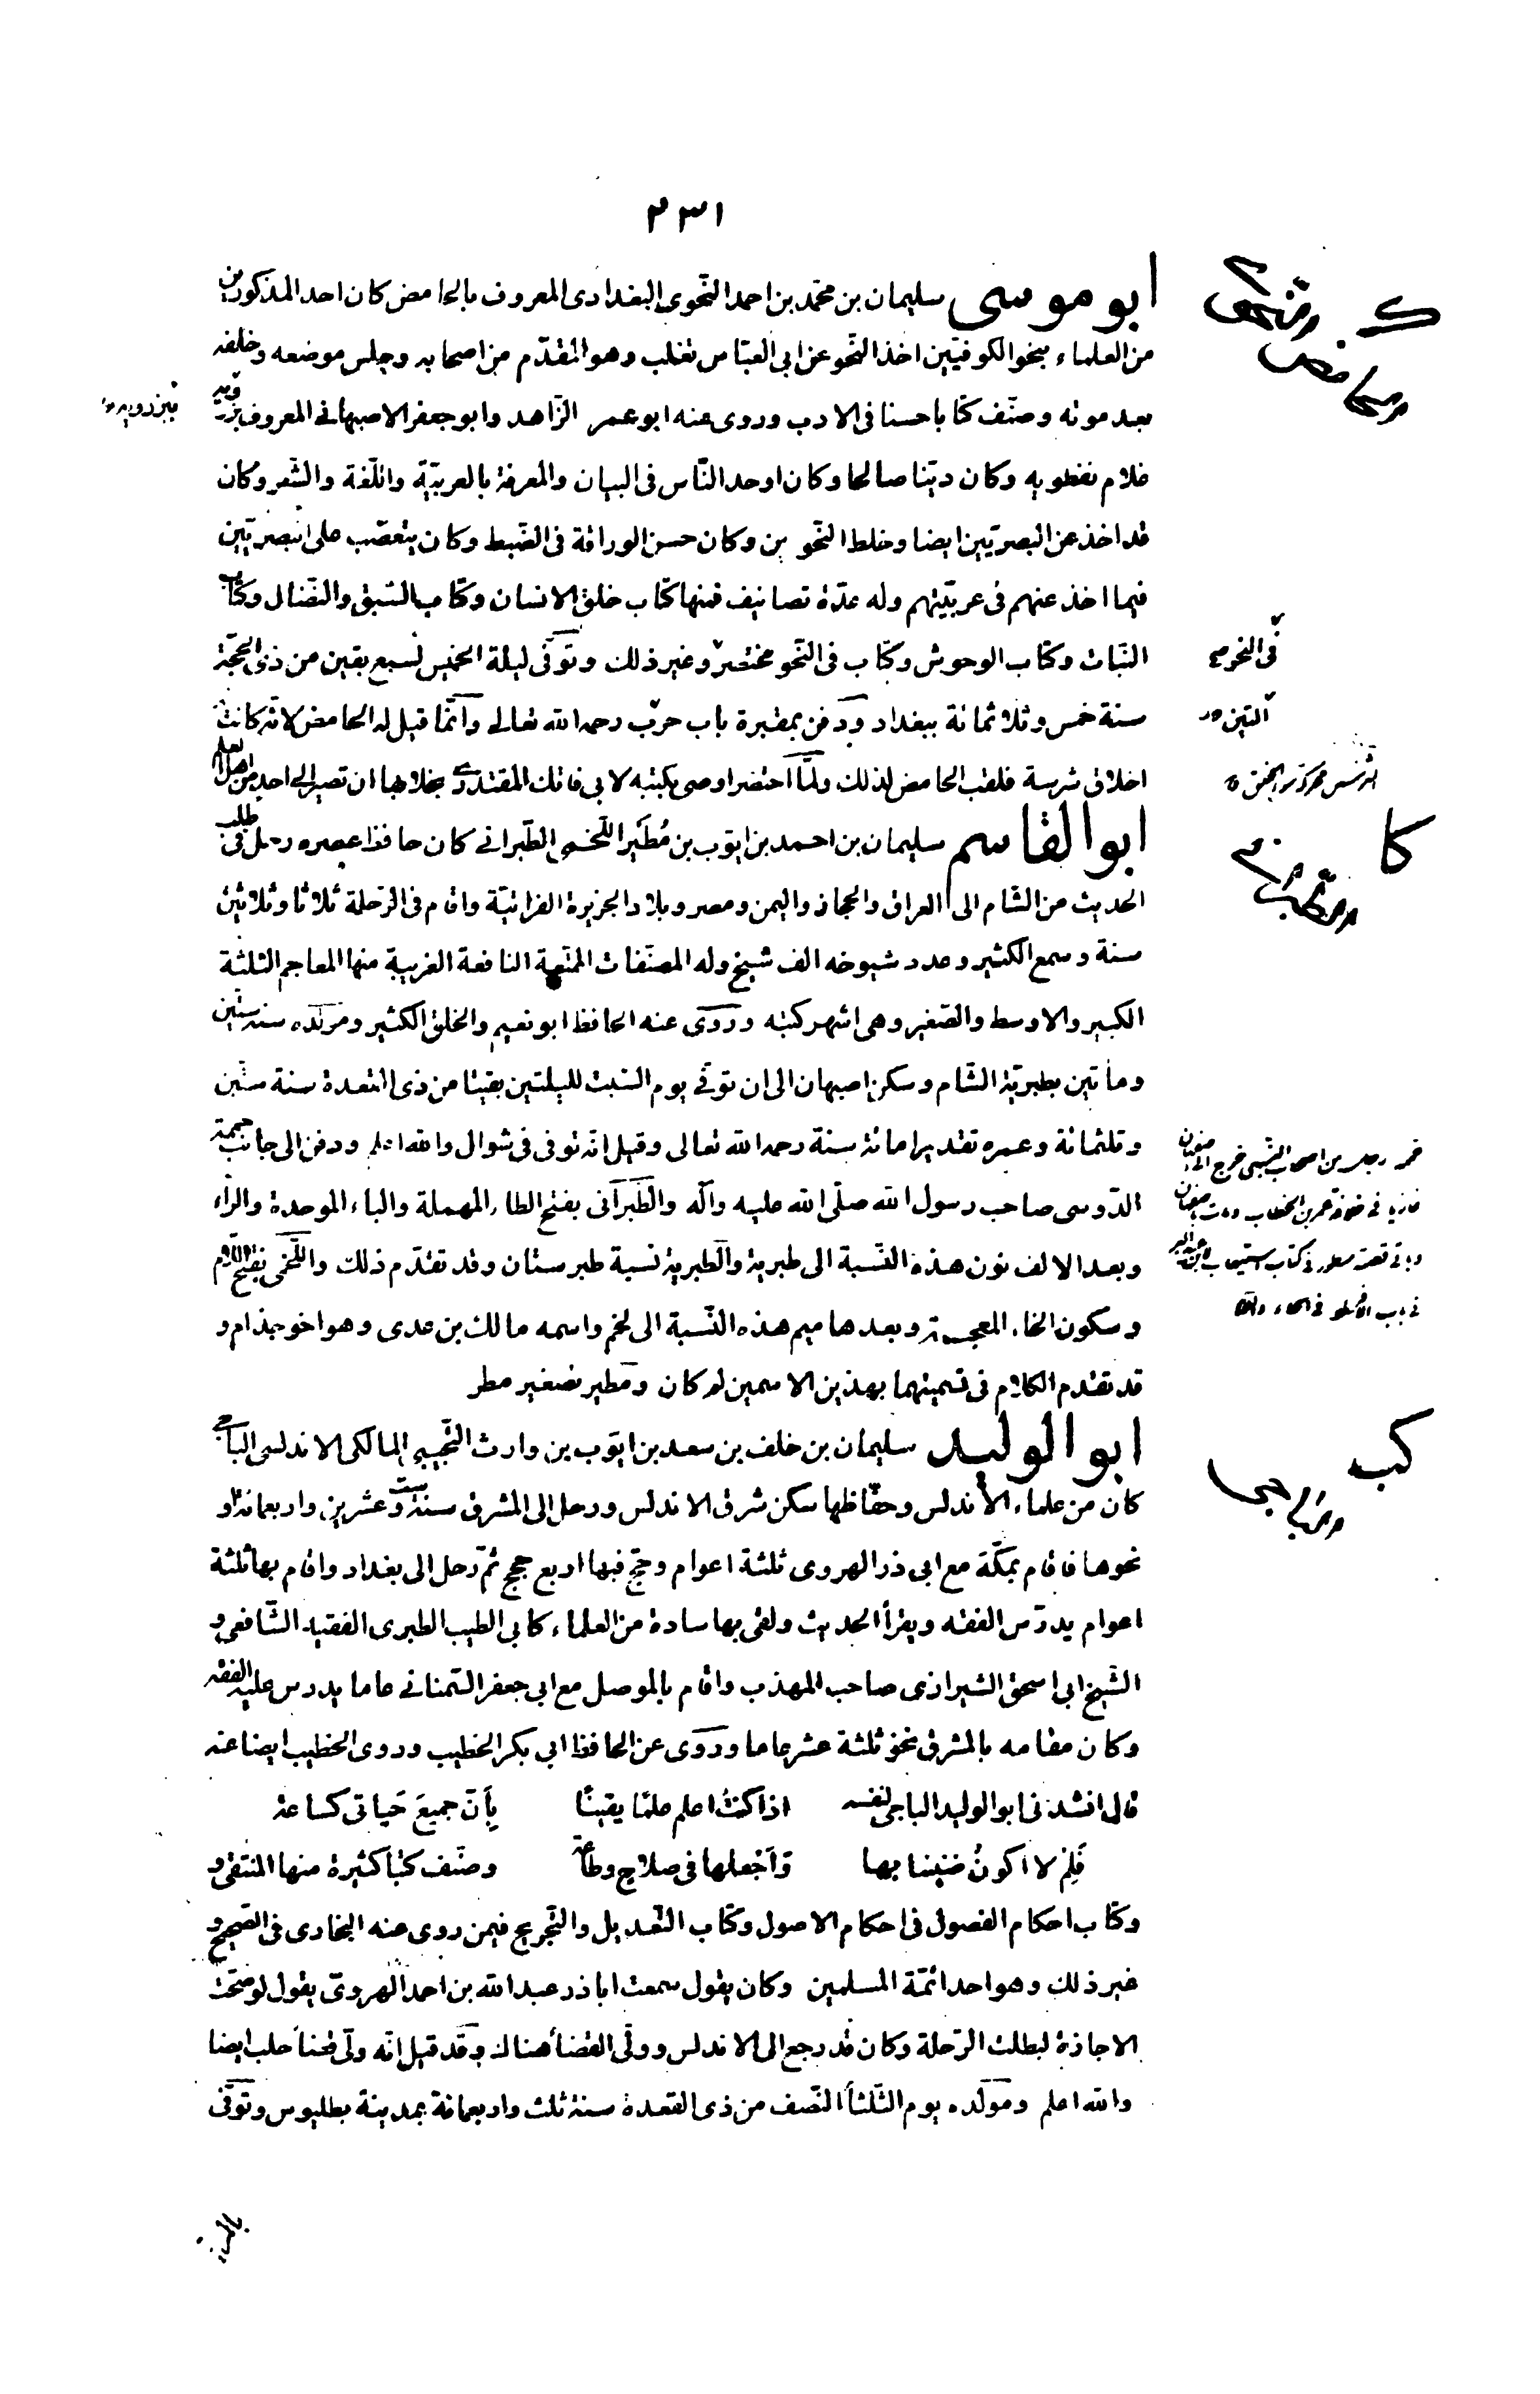 ٢٣١
ابو موسى سليمان بن محمّد بن احمد النّحوى البغدادى المعروف بالحامض كان احد المذكورين
من العلماء بنحو الكوفيّين اخذ النّحو عن ابى العبّاس ثعلب وهو المقدّم من اصحابه وجلس موضعه وخلفه
بعد موته وصنّف كتابا حسنا فى الادب وروى عنه ابو عمر الزّاهد وابو جعفر الاصبهانى المعروف
غلام نفطويه وكان ديّنا صالحا وكان اوحد النّاس فى البيان والمعرفة بالعربيّة واللّغة والشّعر وكان
قد اخذ عن البصريّين ايضا وخلط النّحوين وكان حسن الوراقة فى الضّبط وكان يتعصّب على البصريّين
فيما اخذ عنهم فى عربيّتهم وله عدّة تصانيف فمنها كتاب خلق الانسان وكتاب السّبق والنّضال وكتاب
النّبات وكتاب الوحوش وكتاب فى النّحو مختصر وغير ذلك وتوفّى ليلة الخميس لسبع بقين من ذى الحجّة
سنة خمس وثلاثمائة ببغداد ودفن بمقبرة باب حرب رحمه الله تعالى وانّما قيل له الحامض لانّه كانت
اخلاق شرسة فلقب الحامض لذلك ولمّا احتضر اوصى بكتبه لابى فاتك المقتدرى بخلا بها ان تصير الى احد من اهل العلم
ابو القاسم سليمان بن احمد بن ايّوب بن مُطَير اللّخمى الطّبرانى كان حافظ عصره رحل فى طلب
الحديث من الشّام الى العراق والحجاز واليمن ومصر وبلاد الجزيرة الفراتيّة واقام فى الرّحلة ثلاثا وثلاثين
سنة وسمع الكثير وعدد شيوخه الف شيخ وله المصنّفات الممتعة النافعة الغريبة منها المعاجم الثلثة
الكبير والاوسط والصّغير وهى اشهر كتبه وروى عنه الحافظ ابو نعيم والخلق الكثير ومولده سنة ستّين
ومأتين بطبريّة الشّام وسكن اصبهان الى ان توفّى يوم السّبت لليلتين بقيتا من ذى القعدة سنة ستّين
وثلثمائة وعمره تقديرا مائة سنة رحمه الله تعالى وقيل انّه توفى فى شوال والله اعلم ودفن الى جانب حممة
الدّوسى صاحب رسول الله صلّى الله عليه وآله والطَبَرانى بفتح الطاء المهملة والباء الموحدة والرّاء
وبعد الالف نون هذه النّسبة الى طبرية والطبرية نسبة طبرستان وقد تقدّم ذلك واللّخمى بفتح اللام
وسكون الخاء المعجمة وبعدها ميم هذه النّسبة الى لخم واسمه مالك بن عدى وهو اخو جذام و
قد تقدم الكلام فى تسميتهما بهذين الاسمين لم كان ومطير تصغير مطر
ابو الوليد سليمان بن خلف بن سعد بن ايّوب بن وارث التّجيبى المالكى الاندلسى الباجى
كان من علماء الأندلس وحفّاظها سكن شرق الاندلس ورحل الى المشرق سنة ستّ وعشرين واربعمائة او
نحوها فاقام بمكّة مع ابى ذر الهروى ثلثة اعوام وحجّ فيها اربع حجج ثمّ رحل الى بغداد واقام بها ثلثة
اعوام يدرّس الفقه ويقرأ الحديث ولقى بها سادة من العلماء كابى الطيب الطبرى الفقيه الشّافعى و
الشّيخ ابى اسحق الشيرازى صاحب المهذب واقام بالموصل مع ابى جعفر السّمنانى عاما يدرس عليه الفقه
وكان مقامه بالمشرق نحو ثلثة عشر عاما وروى عن الحافظ ابى بكر الخطيب وروى الخطيب ايضا عنه
قال انشدنى ابو الوليد الباجى لنفسه اذا كنتُ اعلم علمًا يقينًا بِأَنّ جميعَ حَياتى كساعة
فَلِمْ لا اكونُ ضنينا بها وَاَجْعلها فى صلاحٍ وطاعة وصنّف كتبا كثيرة منها المنتقى و
وكتاب احكام الفصول فى احكام الاصول وكتاب التّعديل والتّجريح فيمن روى عنه البخارى فى الصّحيح و
غير ذلك وهو احد ائمّة المسلمين وكان يقول سمعت اباذر عبد الله بن احمد الهروىّ يقول لو صحّت
الاجازة لبطلت الرّحلة وكان قد رجع الى الاندلس وولّى القضأ هناك وقد قيل انّه ولّى قضأ حلب ايضا
والله اعلم ومولده يوم الثّلثأ النّصف من ذى القعدة سنة ثلث واربعمائة بمدينة بطليوس وتوفّى
فى النحو
كا
كب